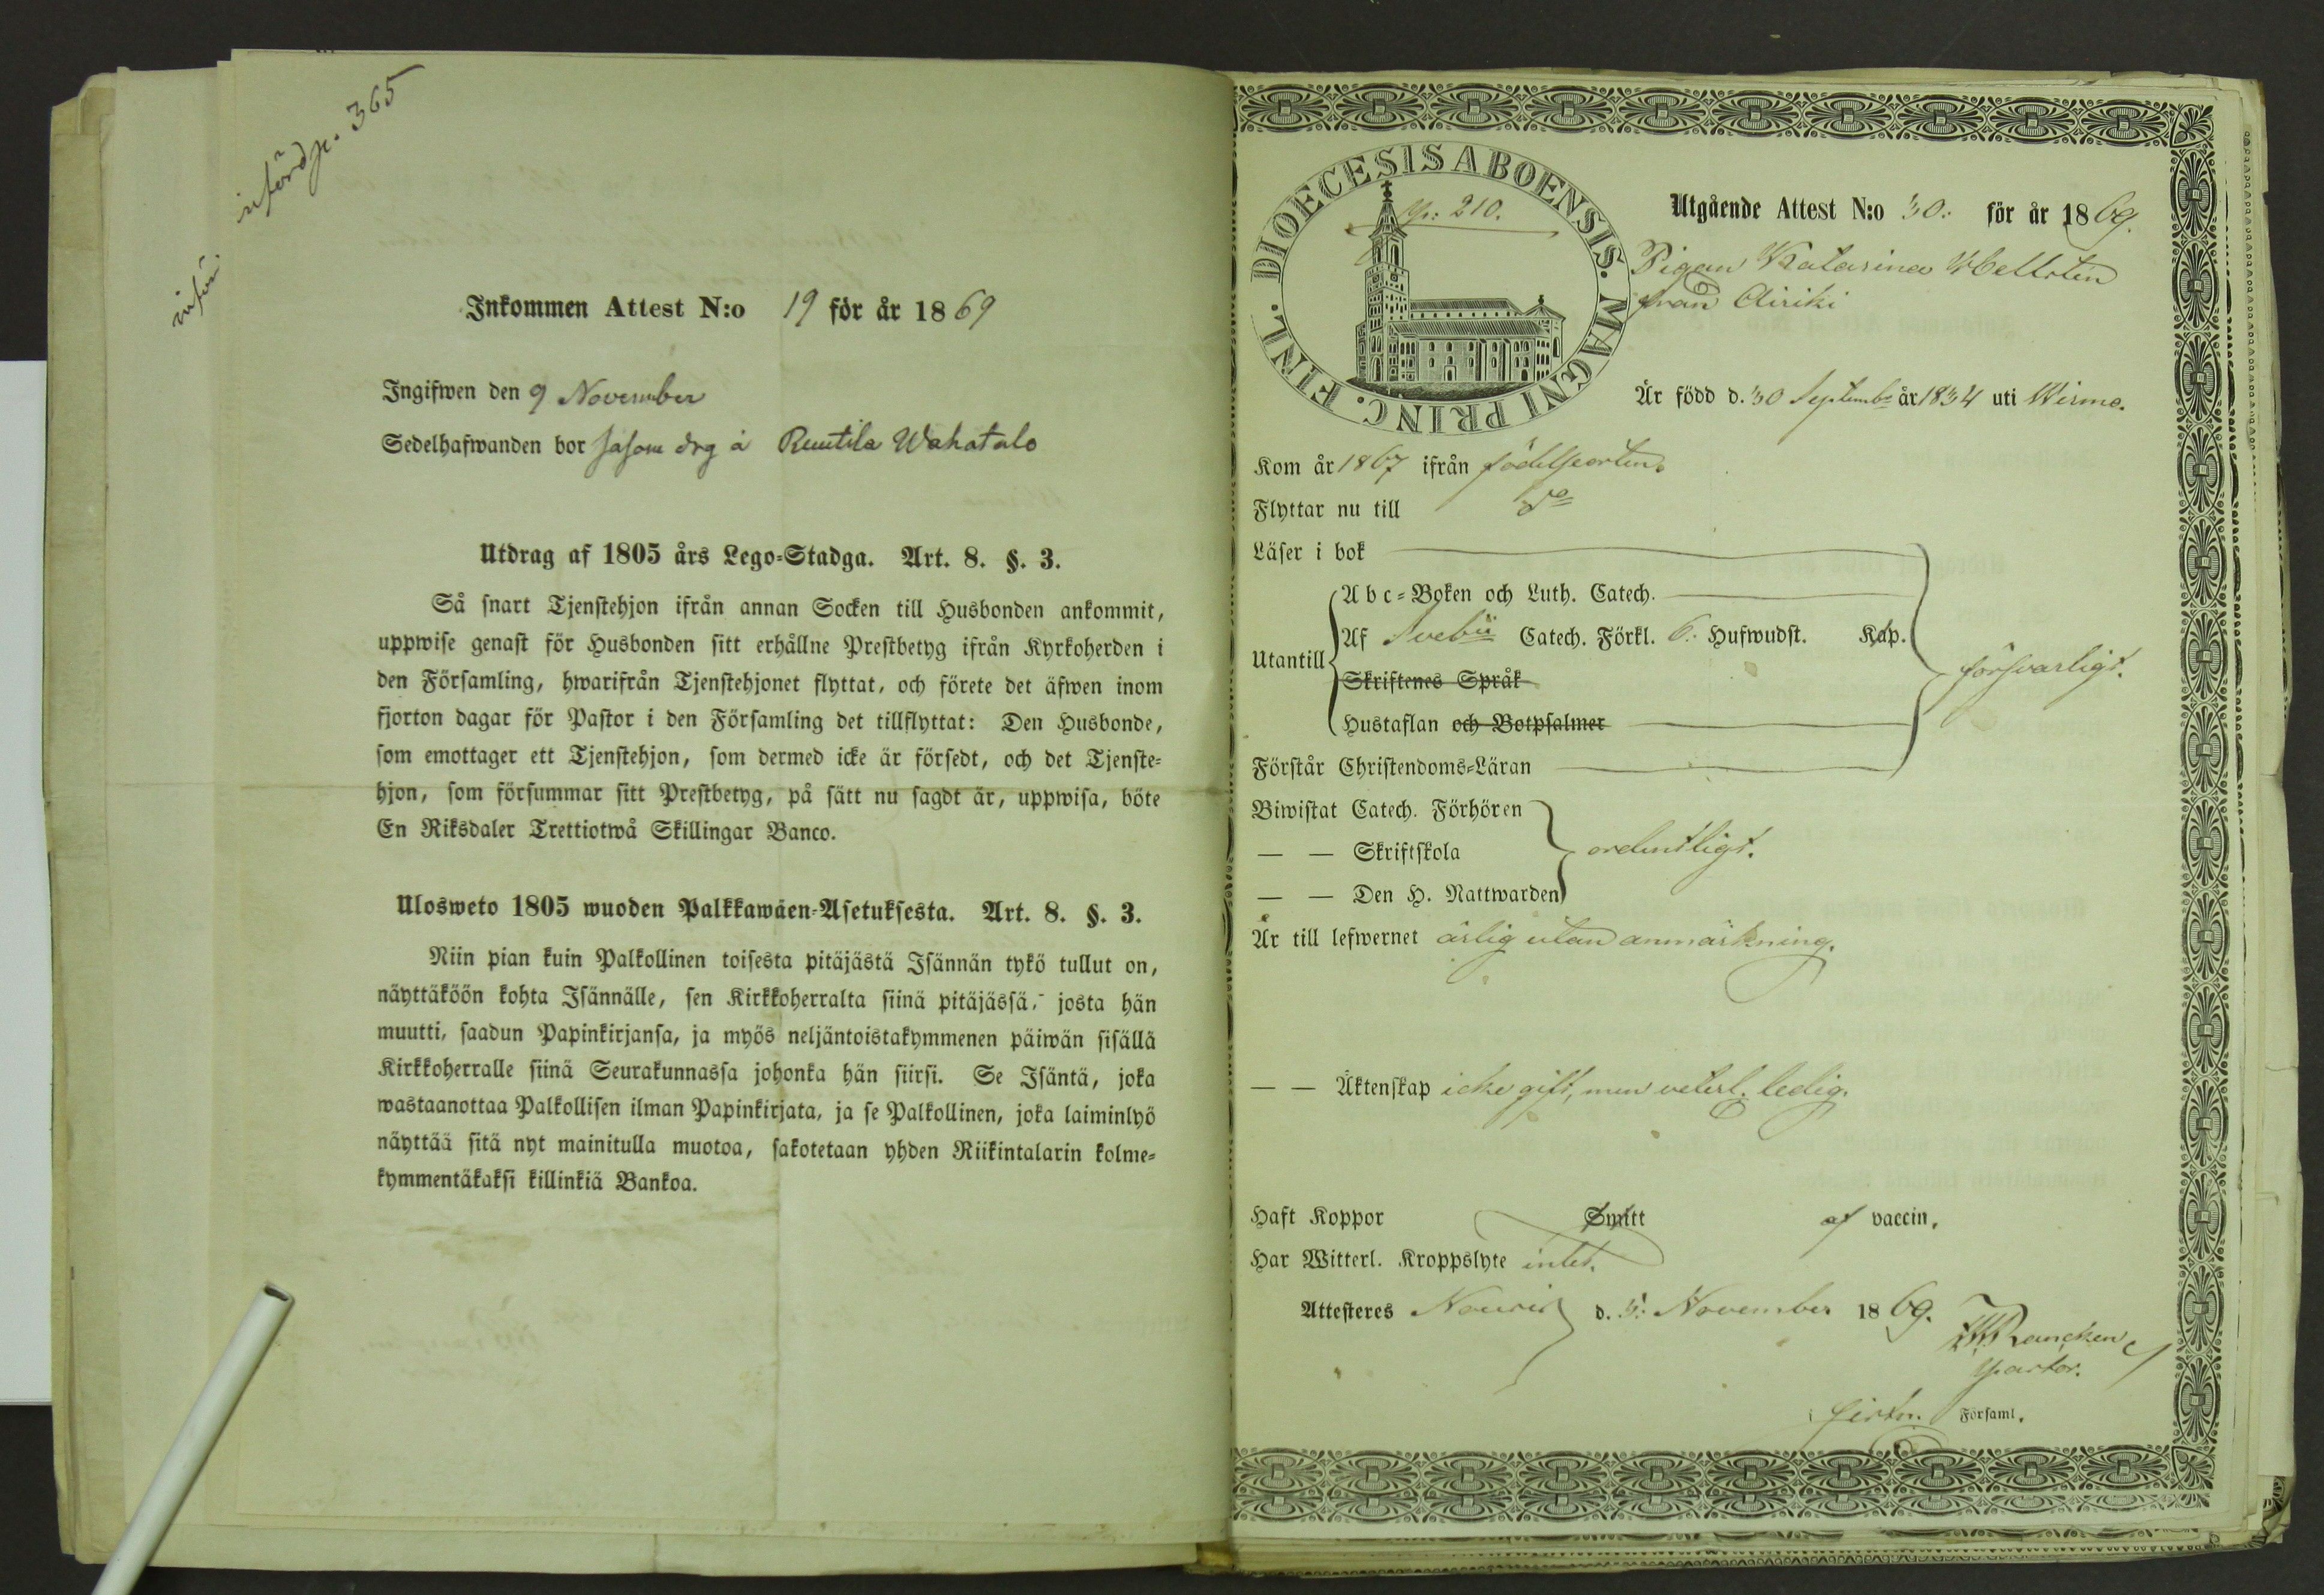 införd p. 365
inför.
Inkommen Attest N:o 19 för år 1869
Ingifwen den 9 November
Sedelhafwanden bor såsom drg å Ruutila Wahatalo
Utdrag af 1805 års Lego-Stadga. Art. 8. §. 3.
Så snart Tjenstehjon ifrån annan Socken till Husbonden ankommit,
uppwise genast för Husbonden sitt erhållne Prestbetyg ifrån Kyrkoherden i
den Församling, hwarifrån Tjenstehjonet flyttat, och förete det äfwen inom
fjorton dagar för Pastor i den Församling det tillflyttat: Den Husbonde,
som emottager ett Tjenstehjon, som dermed icke är försedt, och det Tjenste-
hjon, som försummar sitt Prestbetyg, på sätt nu sagdt är, uppwisa, böte
En Riksdaler Trettiotwå Skillingar Banco.
Ulosweto 1805 wuoden Palkkawäen-Asetuksesta. Art. 8. §. 3.
Niin pian kuin Palkollinen toisesta pitäjästä Isännän tykö tullut on,
näyttäköön kohta Isännälle, sen Kirkkoherralta siinä pitäjässä, josta hän
muutti, saadun Papinkirjansa, ja myös neljäntoistakymmenen päiwän sisällä
Kirkkoherralle siinä Seurakunnassa johonka hän siirsi. Se Isäntä, joka
wastaanottaa Palkollisen ilman Papinkirjata, ja se Palkollinen, joka laiminlyö
näyttää sitä nyt mainitulla muotoa, sakotetaan yhden Riikintalarin kolme-
kymmentäkaksi killinkiä Bankoa.
FINL. DIOECESIS ABOENSIS. MAGNI PRINC.
p: 210.
Utgående Attest N:o 30. för år 1869.
Pigan Katarina Hellsten
från Airiki
Är född d. 30 Septemb. år 1834 uti Wirmo.
Kom år 1867 ifrån födelseorten.
Flyttar nu till do
Läser i bok
Abc-Boken och Luth. Catech.
Utantill Af Svebii Catech. Förkl. 6. Hufwudst. Kap. försvarligt.
Skriftenes Språk
Hustaflan och Botpsalmer
Förstår Christendoms-Läran
Biwistat Catech. Förhören
— — Skriftskola ordentligt.
— — Den H. Nattwarden
Är till lefwernet ärlig utan anmärkning.
— — Äktenskap icke gift, men veterl. ledig.
Haft Koppor Smitt af vaccin.
Har Witterl. Kroppslyte intet.
Attesteres Nousis d. 5. November 1869.
Rancken
Pastor.
Församl.